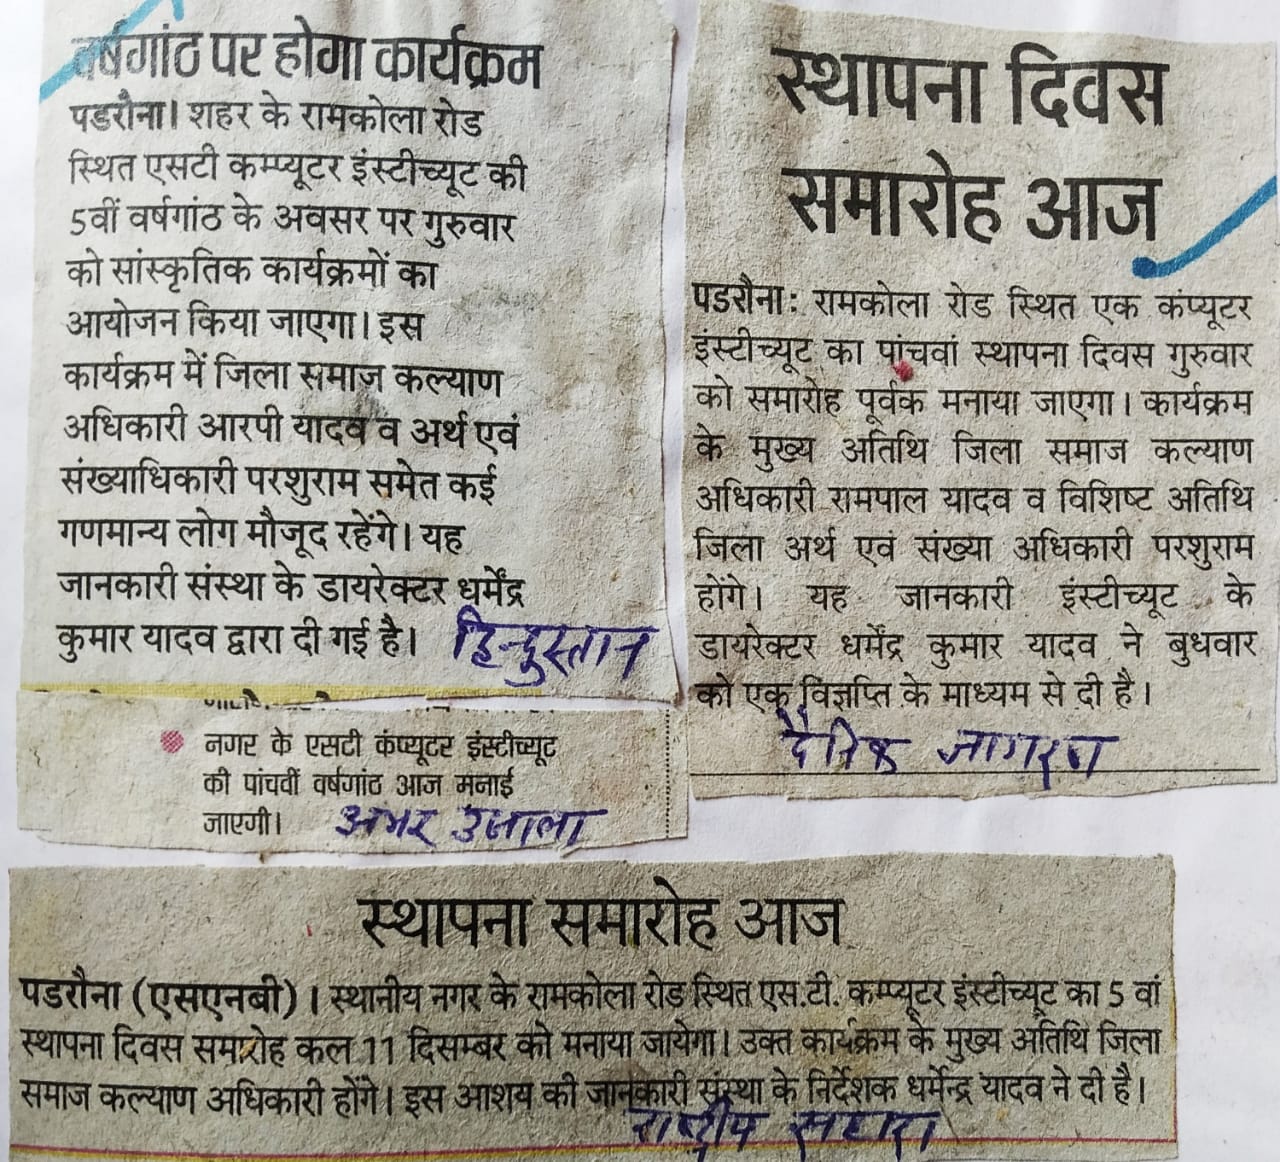 वर्षगांठ पर होगा कार्यक्रम
पडरौना। शहर के रामकोला रोड
स्थित एसटी कम्प्यूटर इंस्टीच्यूट की
5वीं वर्षगांठ के अवसर पर गुरुवार
को सांस्कृतिक कार्यक्रमों का
आयोजन किया जाएगा। इस
कार्यक्रम में जिला समाज कल्याण
अधिकारी आरपी यादव व अर्थ एवं
संख्याधिकारी परशुराम समेत कई
गणमान्य लोग मौजूद रहेंगे। यह
जानकारी संस्था के डायरेक्टर धर्मेंद्र
कुमार यादव द्वारा दी गई है। हिन्दुस्तान
नगर के एसटी कंप्यूटर इंस्टीच्यूट
की पांचवीं वर्षगांठ आज मनाई
जाएगी। अमर उजाला
स्थापना दिवस
समारोह आज
पडरौना: रामकोला रोड स्थित एक कंप्यूटर
इंस्टीच्यूट का पांचवां स्थापना दिवस गुरुवार
को समारोह पूर्वक मनाया जाएगा। कार्यक्रम
के मुख्य अतिथि जिला समाज कल्याण
अधिकारी रामपाल यादव व विशिष्ट अतिथि
जिला अर्थ एवं संख्या अधिकारी परशुराम
होंगे। यह जानकारी इंस्टीच्यूट के
डायरेक्टर धर्मेंद्र कुमार यादव ने बुधवार
को एक विज्ञप्ति के माध्यम से दी है।
दैनिक जागरण
स्थापना समारोह आज
पडरौना (एसएनबी)। स्थानीय नगर के रामकोला रोड स्थित एस.टी. कम्प्यूटर इंस्टीच्यूट का 5 वां
स्थापना दिवस समारोह कल 11 दिसम्बर को मनाया जायेगा। उक्त कार्यक्रम के मुख्य अतिथि जिला
समाज कल्याण अधिकारी होंगे। इस आशय की जानकारी संस्था के निर्देशक धर्मेन्द्र यादव ने दी है।
राष्ट्रीय सहारा